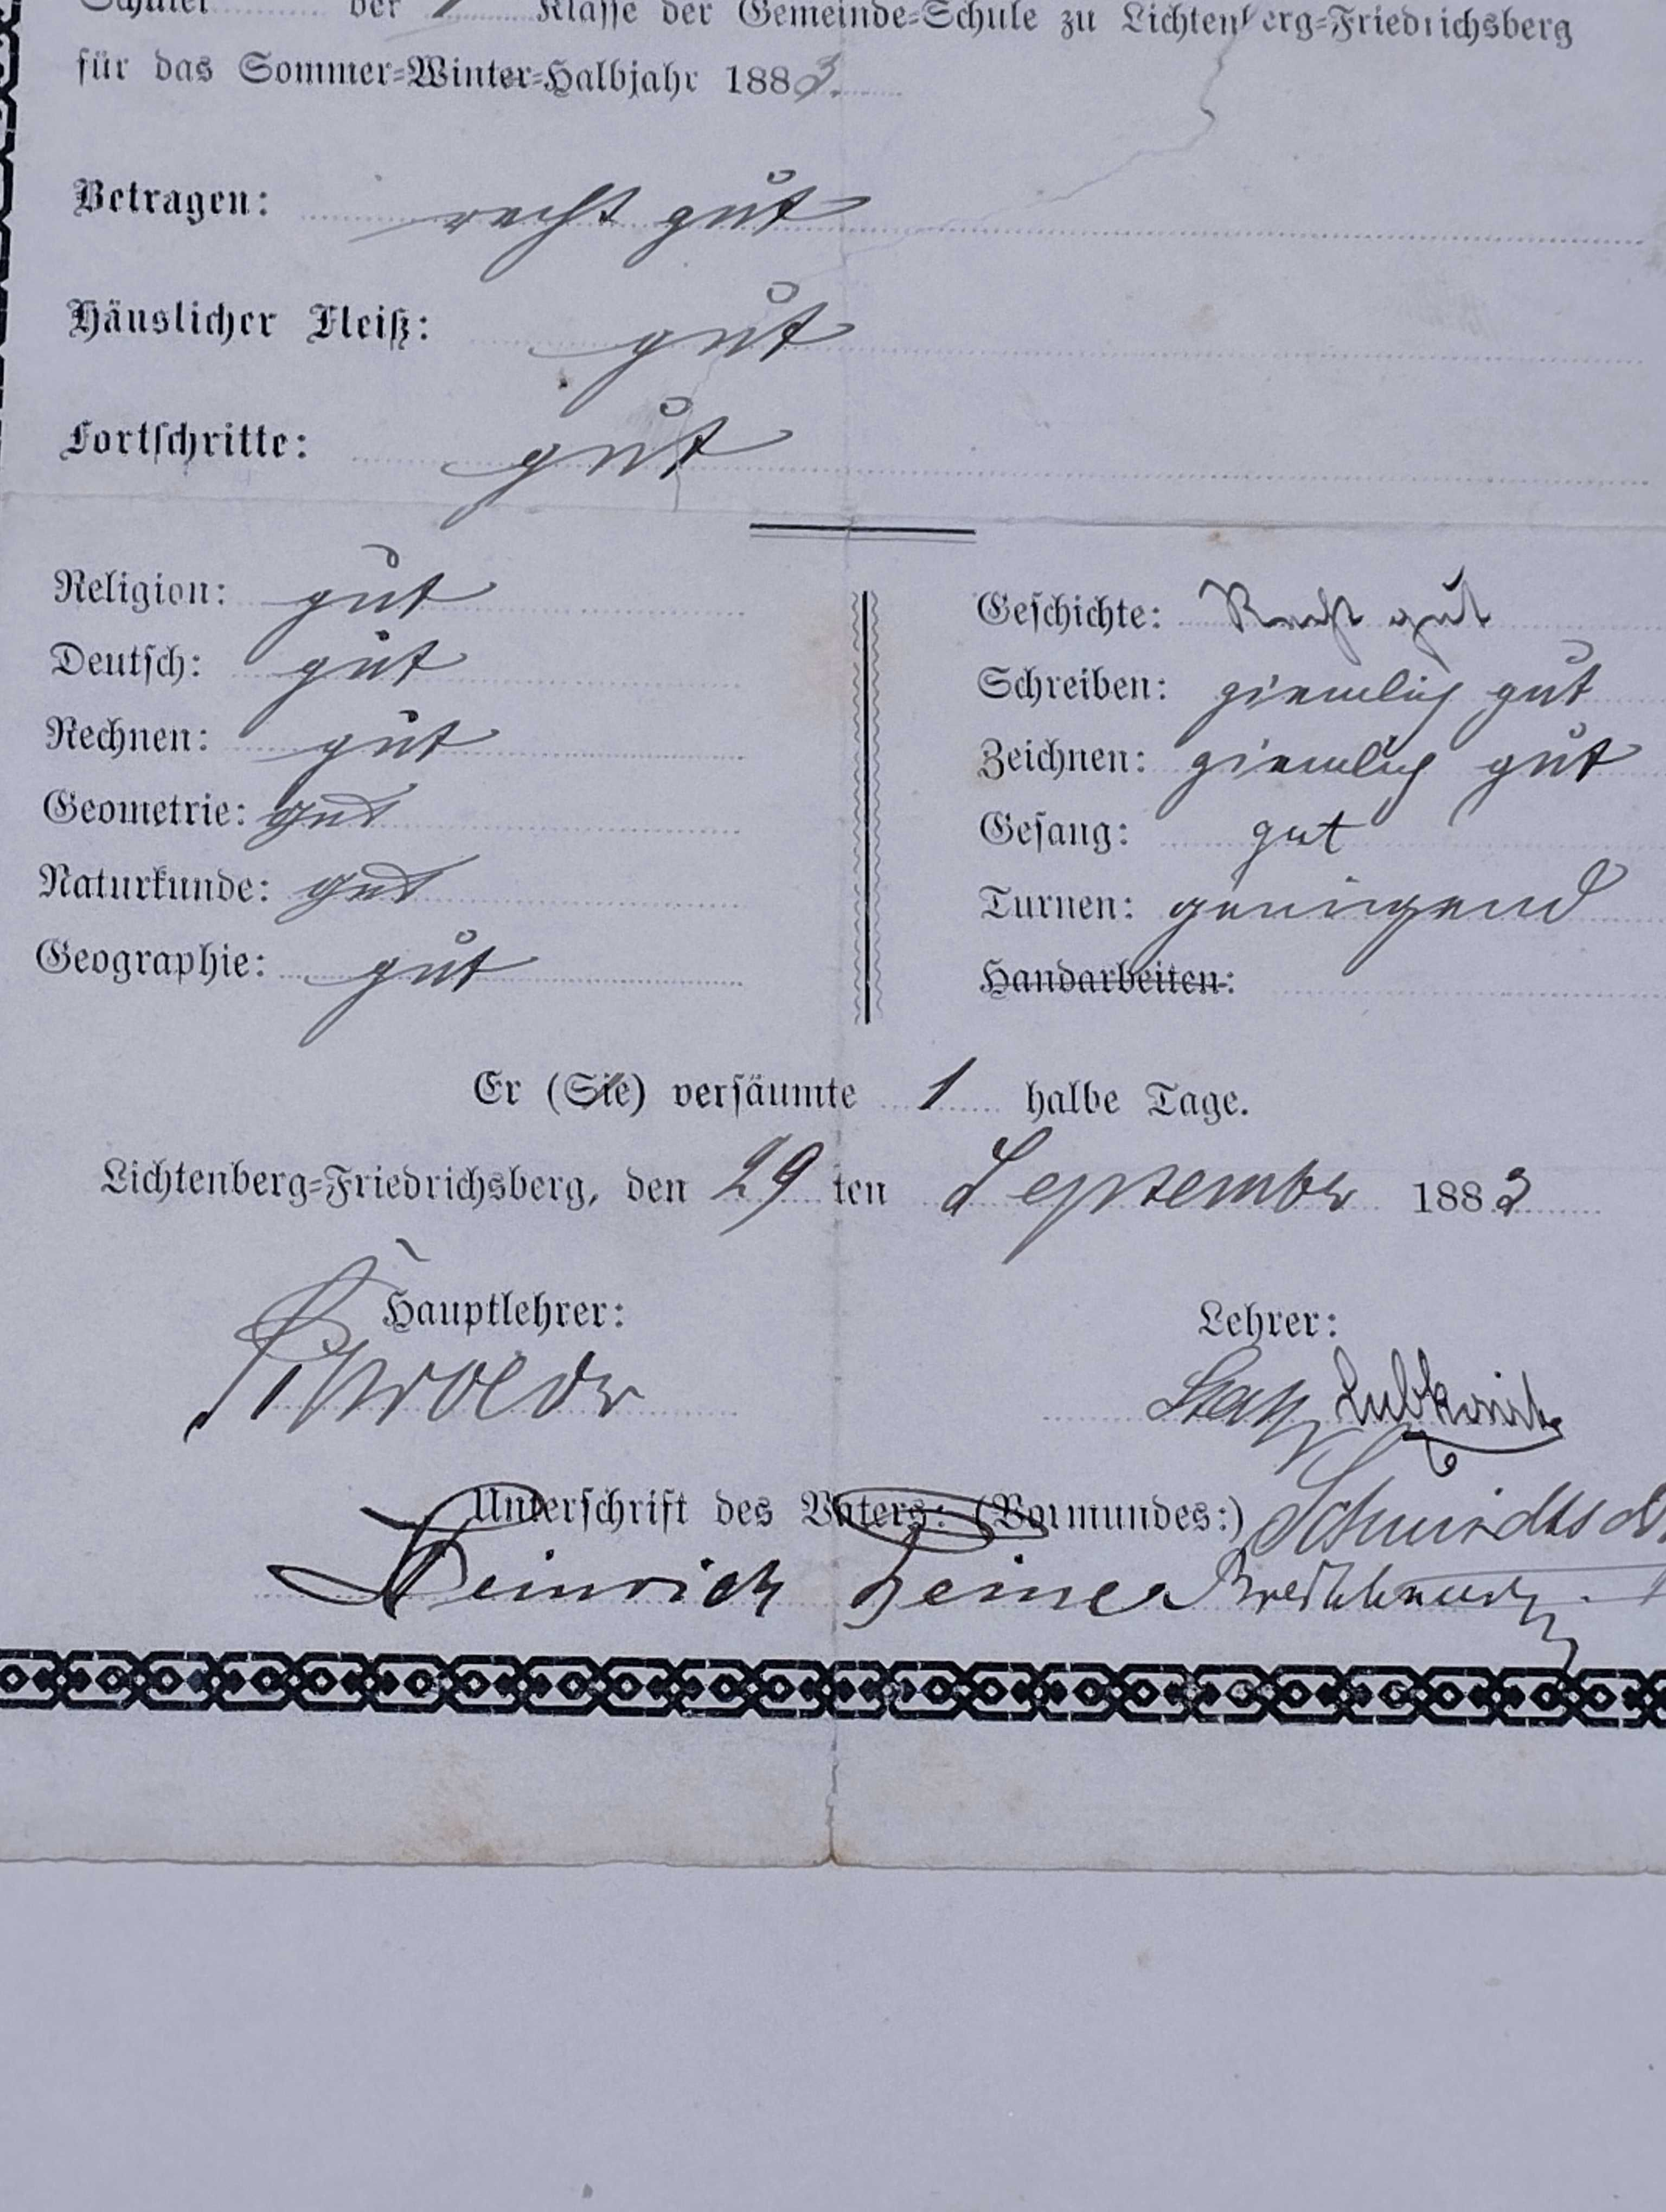 Schüler der 1 Klasse der Gemeinde-Schule zu Lichtenberg-Friedrichsberg
für das Sommer-Winter-Halbjahr 1883.
Betragen: recht gut
Häuslicher Fleiß: gut
Fortschritte: gut
Religion: gut
Deutsch: gut
Rechnen: gut
Geometrie: gut
Naturkunde: gut
Geographie: gut
Geschichte: Recht gut
Schreiben: ziemlich gut
Zeichnen: ziemlich gut
Gesang: gut
Turnen: genügend
Handarbeiten:
Er (Sie) versäumte 1 halbe Tage.
Lichtenberg-Friedrichsberg, den 29 ten September 1883
Hauptlehrer:
Lehrer:
Unterschrift des Vaters: (Vormundes:) Schmidtsdorf
Heinrich Heine